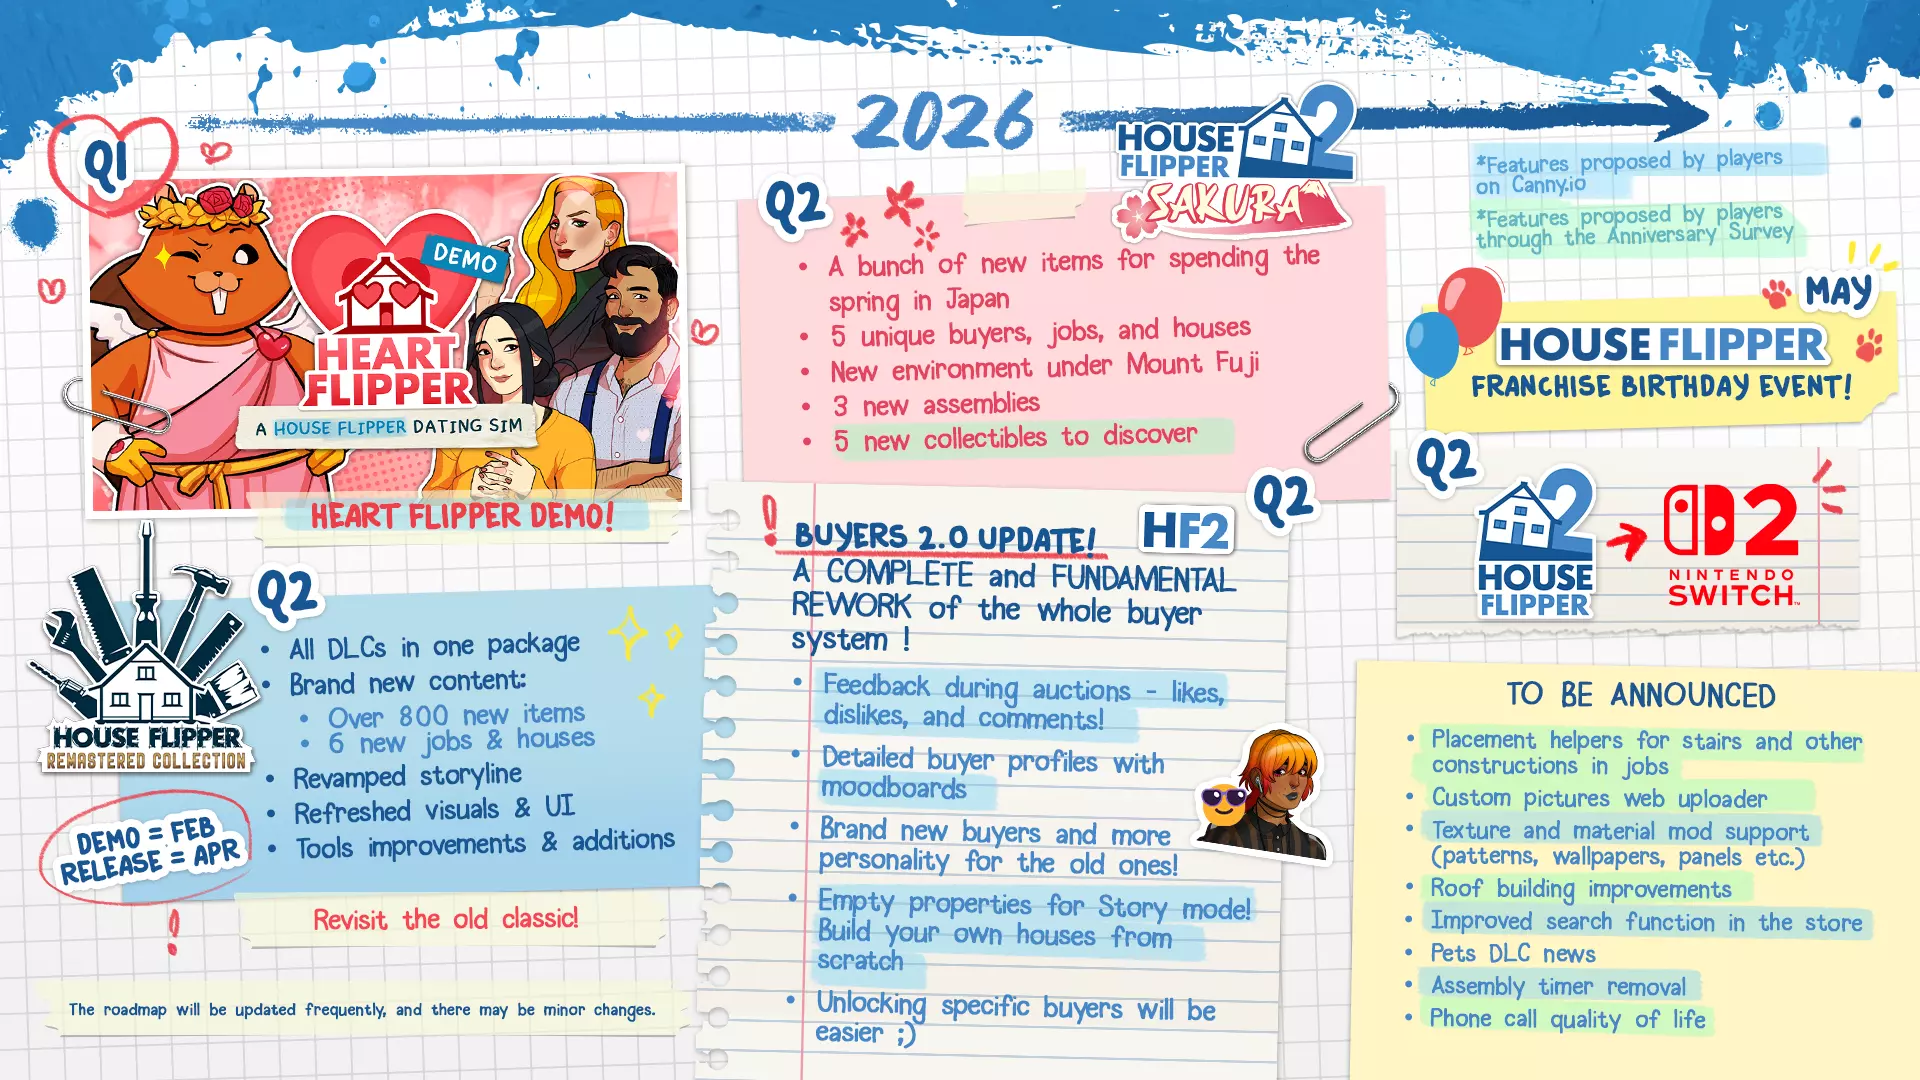 2026
Q1
DEMO
HEART
FLIPPER
A HOUSE FLIPPER DATING SIM
HEART FLIPPER DEMO!
Q2
HOUSE FLIPPER
REMASTERED COLLECTION
• All DLCs in one package
• Brand new content:
• Over 800 new items
• 6 new jobs & houses
• Revamped storyline
• Refreshed visuals & UI
• Tools improvements & additions
DEMO = FEB
RELEASE = APR
Revisit the old classic!
The roadmap will be updated frequently, and there may be minor changes.
Q2
HOUSE 2
FLIPPER
SAKURA
• A bunch of new items for spending the
spring in Japan
• 5 unique buyers, jobs, and houses
• New environment under Mount Fuji
• 3 new assemblies
• 5 new collectibles to discover
Q2
! BUYERS 2.0 UPDATE! HF2
A COMPLETE and FUNDAMENTAL
REWORK of the whole buyer
system !
• Feedback during auctions - likes,
dislikes, and comments!
• Detailed buyer profiles with
moodboards
• Brand new buyers and more
personality for the old ones!
• Empty properties for Story mode!
Build your own houses from
scratch
• Unlocking specific buyers will be
easier ;)
*Features proposed by players
on Canny.io
*Features proposed by players
through the Anniversary Survey
MAY
HOUSE FLIPPER
FRANCHISE BIRTHDAY EVENT!
Q2
2
HOUSE
FLIPPER
2
NINTENDO
SWITCH™
TO BE ANNOUNCED
• Placement helpers for stairs and other
constructions in jobs
• Custom pictures web uploader
• Texture and material mod support
(patterns, wallpapers, panels etc.)
• Roof building improvements
• Improved search function in the store
• Pets DLC news
• Assembly timer removal
• Phone call quality of life